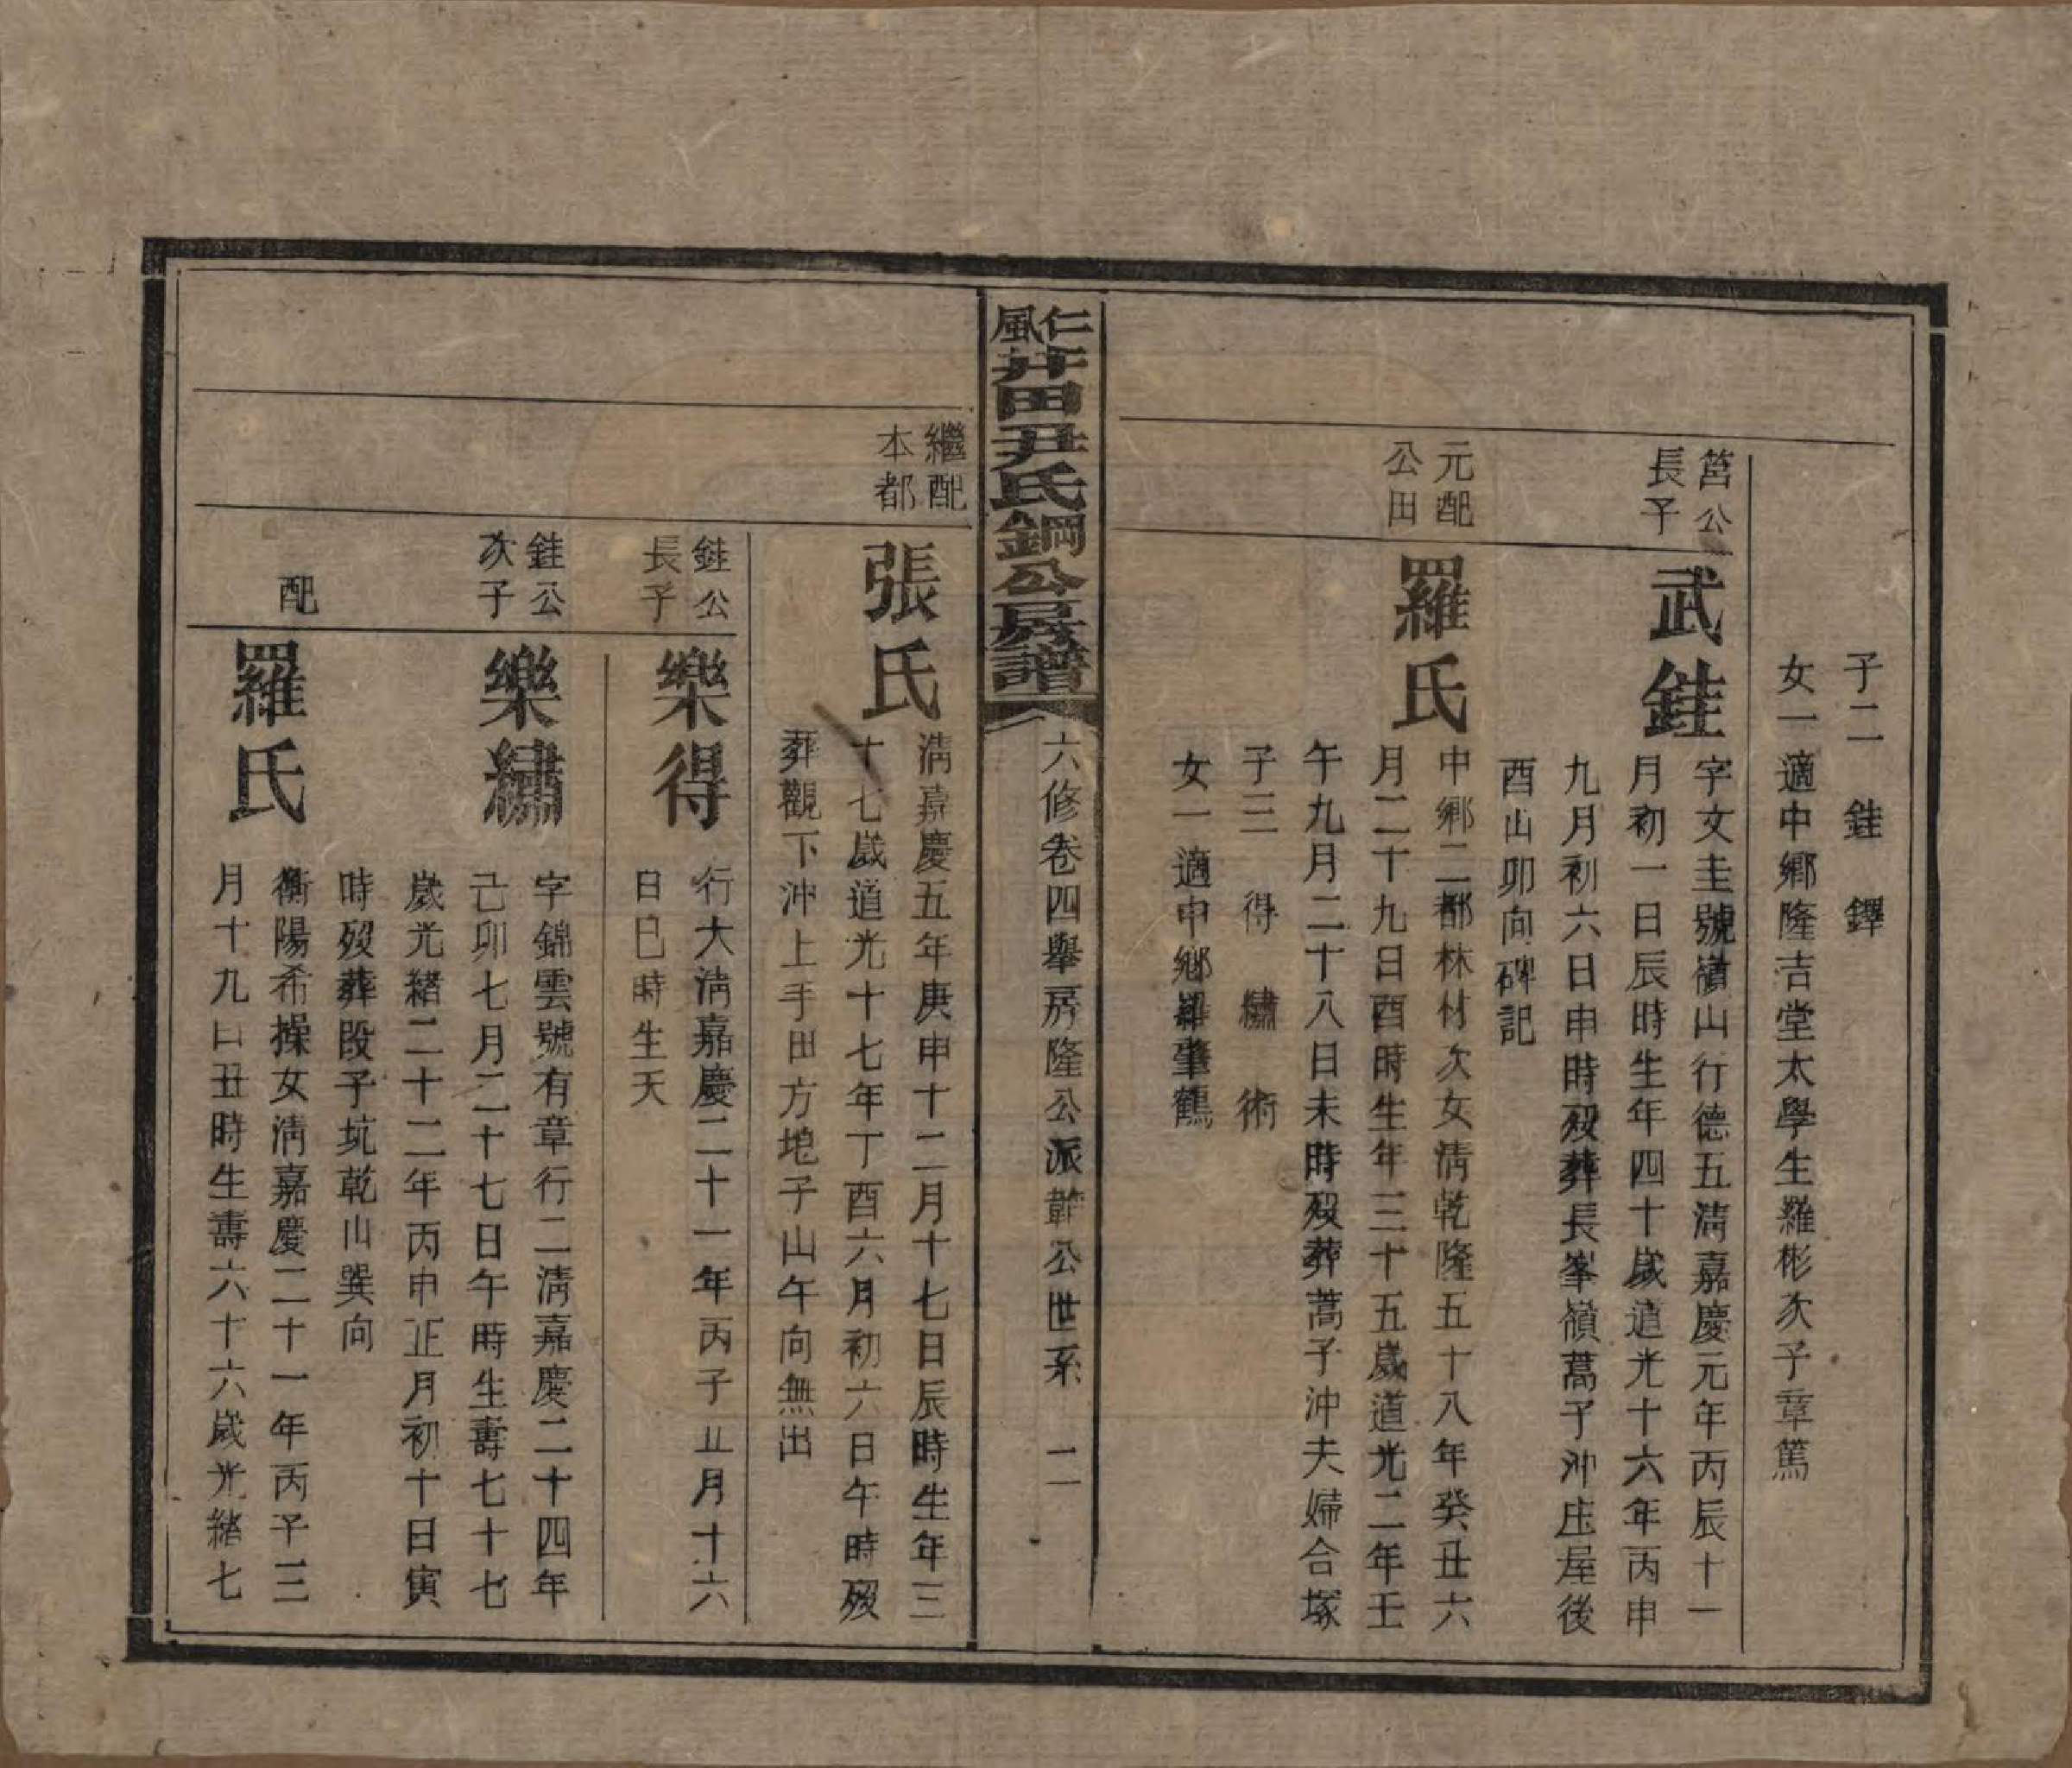 子二 銈 鐸
女一適中鄉隆吉堂太學生羅彬次子章篤
筥公
長子
武銈
字文圭號嶺山行德五淸嘉慶元年丙辰十一
月初一日辰時生年四十歲道光十六年丙申
九月初六日申時歿葬長峯嶺蒿子沖庄屋後
酉山卯向碑記
元配
公田
羅氏
中鄉二都林材次女淸乾隆五十八年癸丑六
月二十九日酉時生年三十五歲道光二年壬
午九月二十八日未時歿葬蒿子沖夫婦合塚
子三 得 繡 術
女一適中鄉羅肇鶴
仁風井田尹氏鋼公房譜
六修卷四舉房隆公派節公世系 二
繼配
本都
張氏
淸嘉慶五年庚申十二月十七日辰時生年三
十七歲道光十七年丁酉六月初六日午時歿
葬觀下沖上手田方垉子山午向無出
銈公
長子
樂得
行大淸嘉慶二十一年丙子正月十六
日巳時生夭
銈公
次子
樂繡
字錦雲號有章行二淸嘉慶二十四年
己卯七月二十七日午時生壽七十七
歲光緒二十二年丙申正月初十日寅
時歿葬段子坑乾山巽向
配
羅氏
衡陽希操女淸嘉慶二十一年丙子三
月十九日丑時生壽六十六歲光緒七